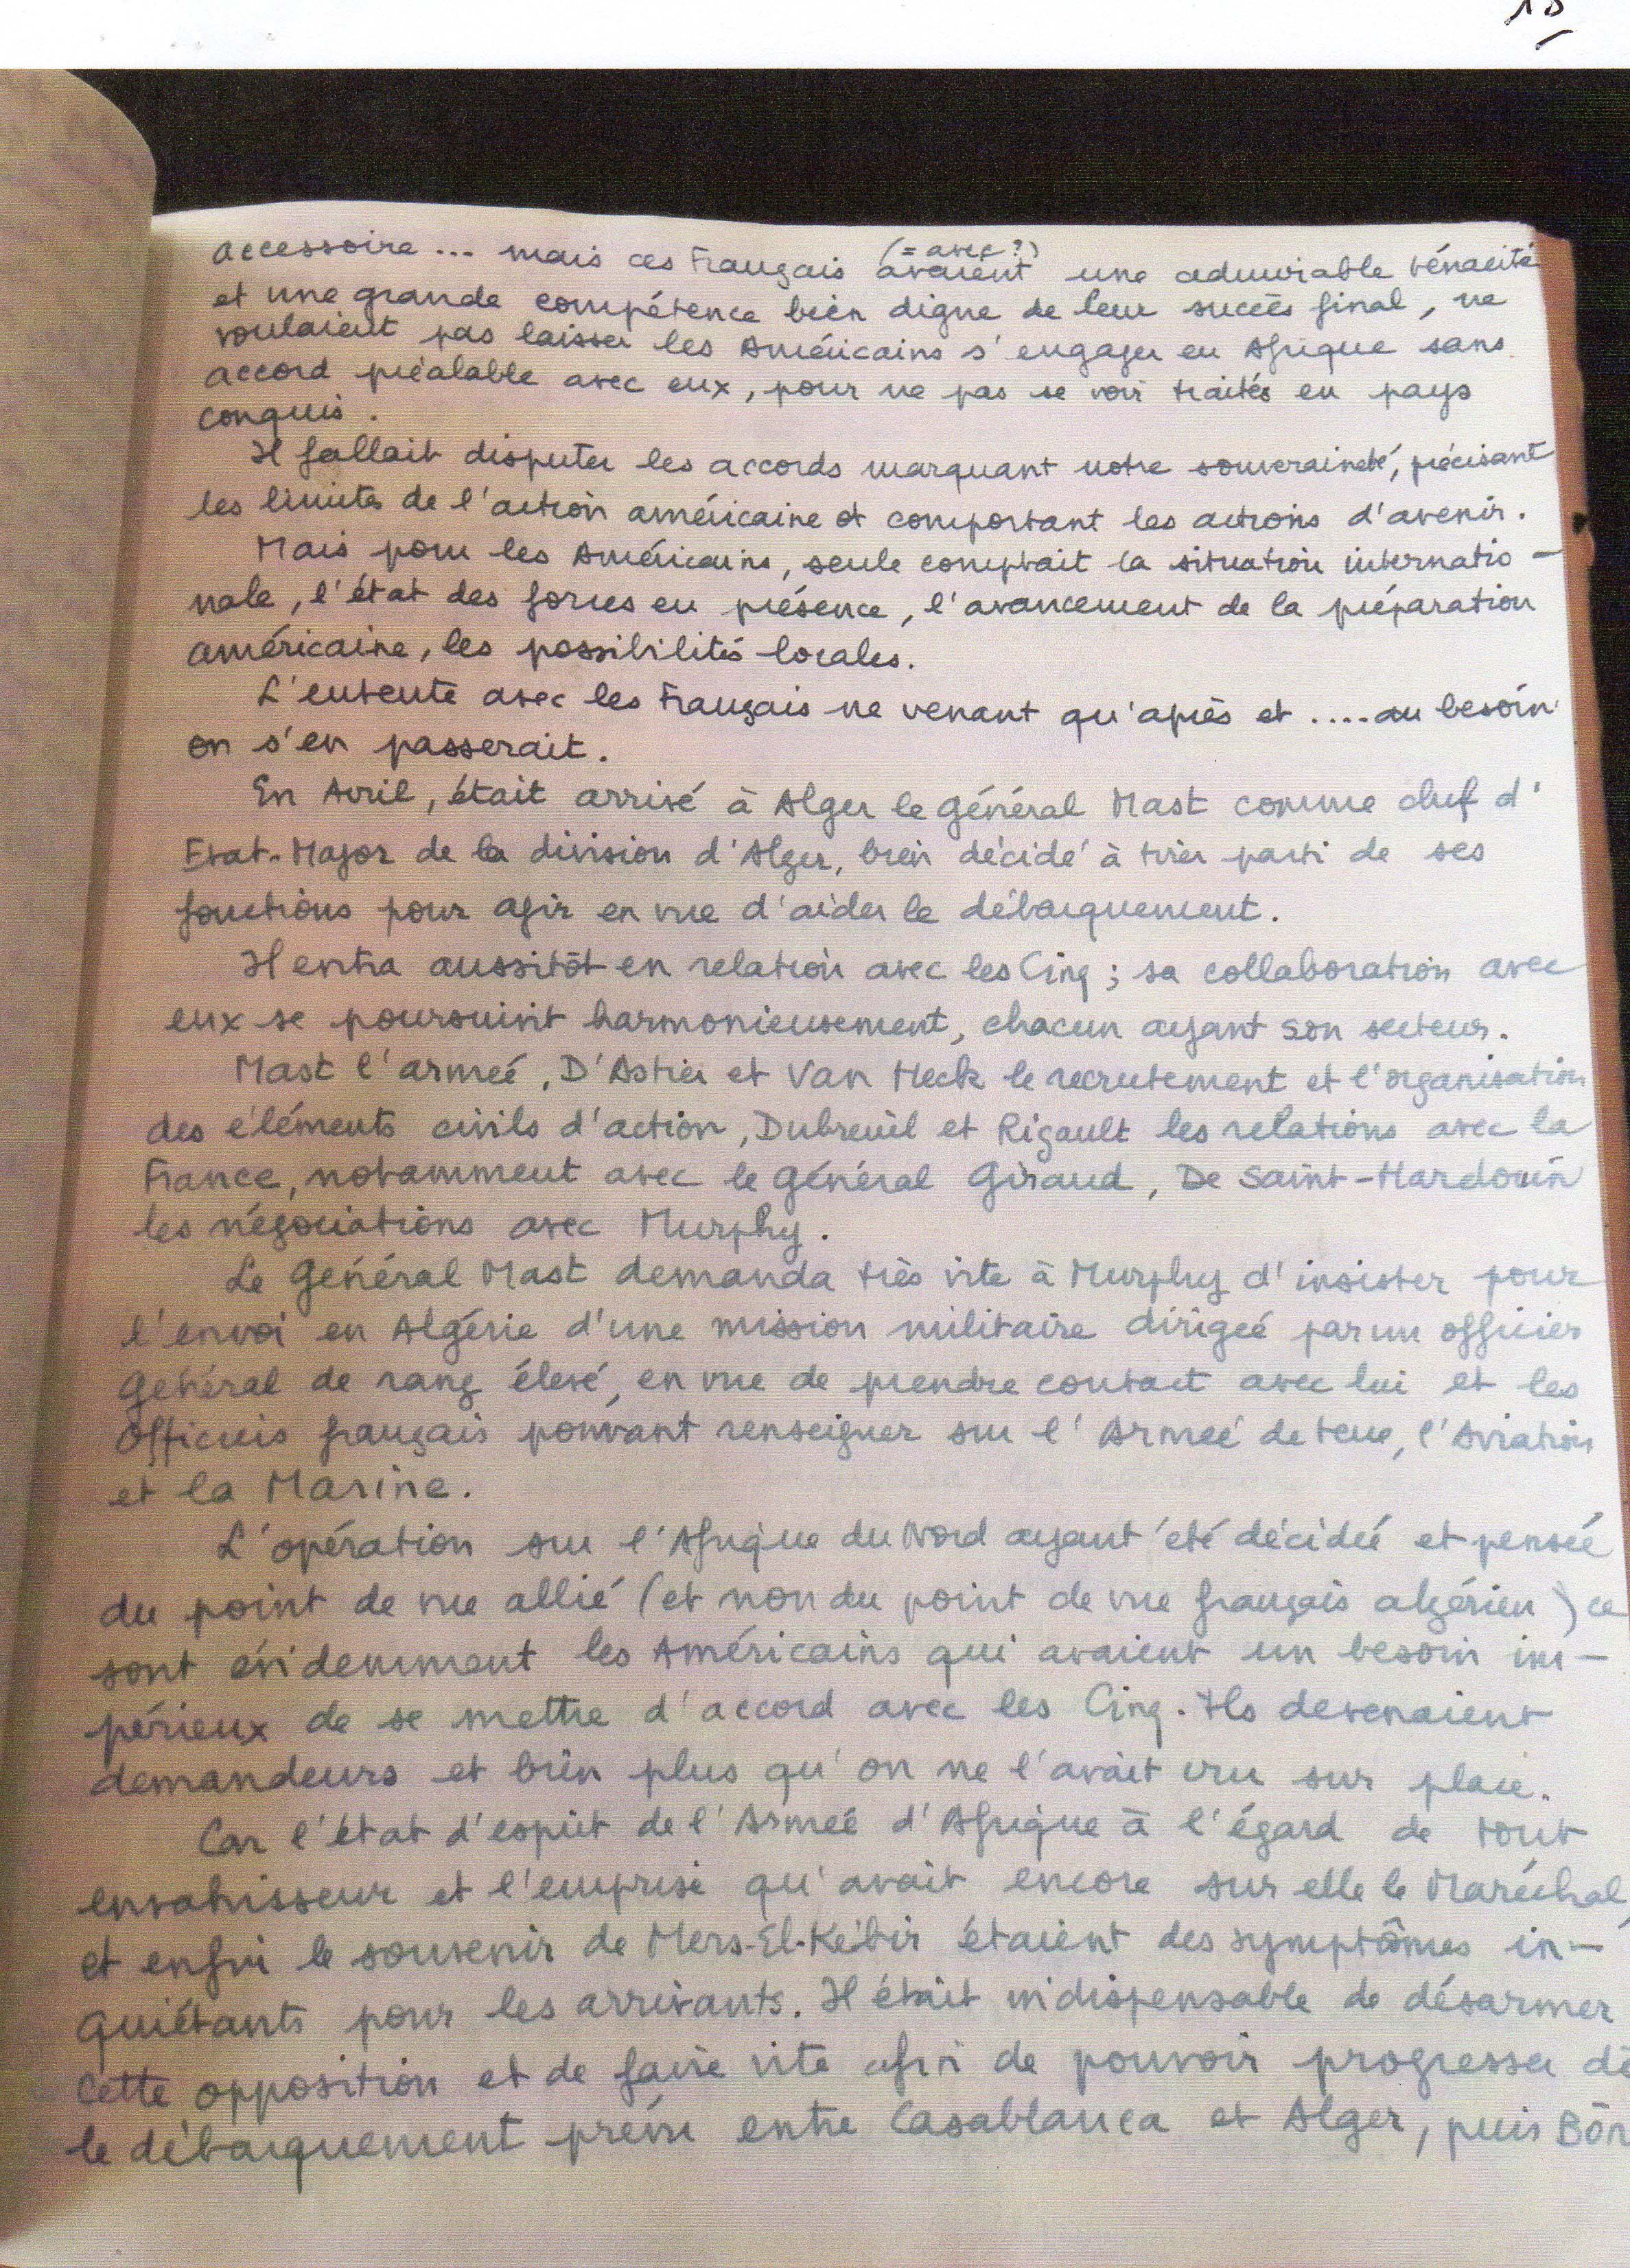 accessoire ... mais ces Français avaient (= avec ?) une admirable ténacité
et une grande compétence bien digne de leur succès final, ne
voulaient pas laisser les Américains s'engager en Afrique sans
accord préalable avec eux, pour ne pas se voir traités en pays
conquis.
Il fallait disputer les accords marquant notre souveraineté, précisant
les limites de l'action américaine et comportant les actions d'avenir.
Mais pour les Américains, seule comptait la situation internatio-
nale, l'état des forces en présence, l'avancement de la préparation
américaine, les possibilités locales.
L'entente avec les Français ne venant qu'après et .... au besoin
on s'en passerait.
En Avril, était arrivé à Alger le Général Mast comme chef d'
Etat-Major de la division d'Alger, bien décidé à tirer parti de ses
fonctions pour agir en vue d'aider le débarquement.
Il entra aussitôt en relation avec les Cinq ; sa collaboration avec
eux se poursuivit harmonieusement, chacun ayant son secteur.
Mast l'armée, D'Astier et Van Heck le recrutement et l'organisation
des éléments civils d'action, Dubreuil et Rigault les relations avec la
France, notamment avec le Général Giraud, De Saint-Hardouin
les négociations avec Murphy.
Le Général Mast demanda très vite à Murphy d'insister pour
l'envoi en Algérie d'une mission militaire dirigée par un officier
Général de rang élevé, en vue de prendre contact avec lui et les
Officiers français pouvant renseigner sur l'Armée de terre, l'Aviation
et la Marine.
L'opération sur l'Afrique du Nord ayant été décidée et pensée
du point de vue allié (et non du point de vue français algérien) ce
sont évidemment les Américains qui avaient un besoin im-
périeux de se mettre d'accord avec les Cinq. Ils devenaient
demandeurs et bien plus qu'on ne l'avait cru sur place.
Car l'état d'esprit de l'Armée d'Afrique à l'égard de tout
envahisseur et l'emprise qu'avait encore sur elle le Maréchal,
et enfin le souvenir de Mers-El-Kébir étaient des symptômes in-
quiétants pour les arrivants. Il était indispensable de désarmer
cette opposition et de faire vite afin de pouvoir progresser dè
le débarquement prévu entre Casablanca et Alger, puis Bôn